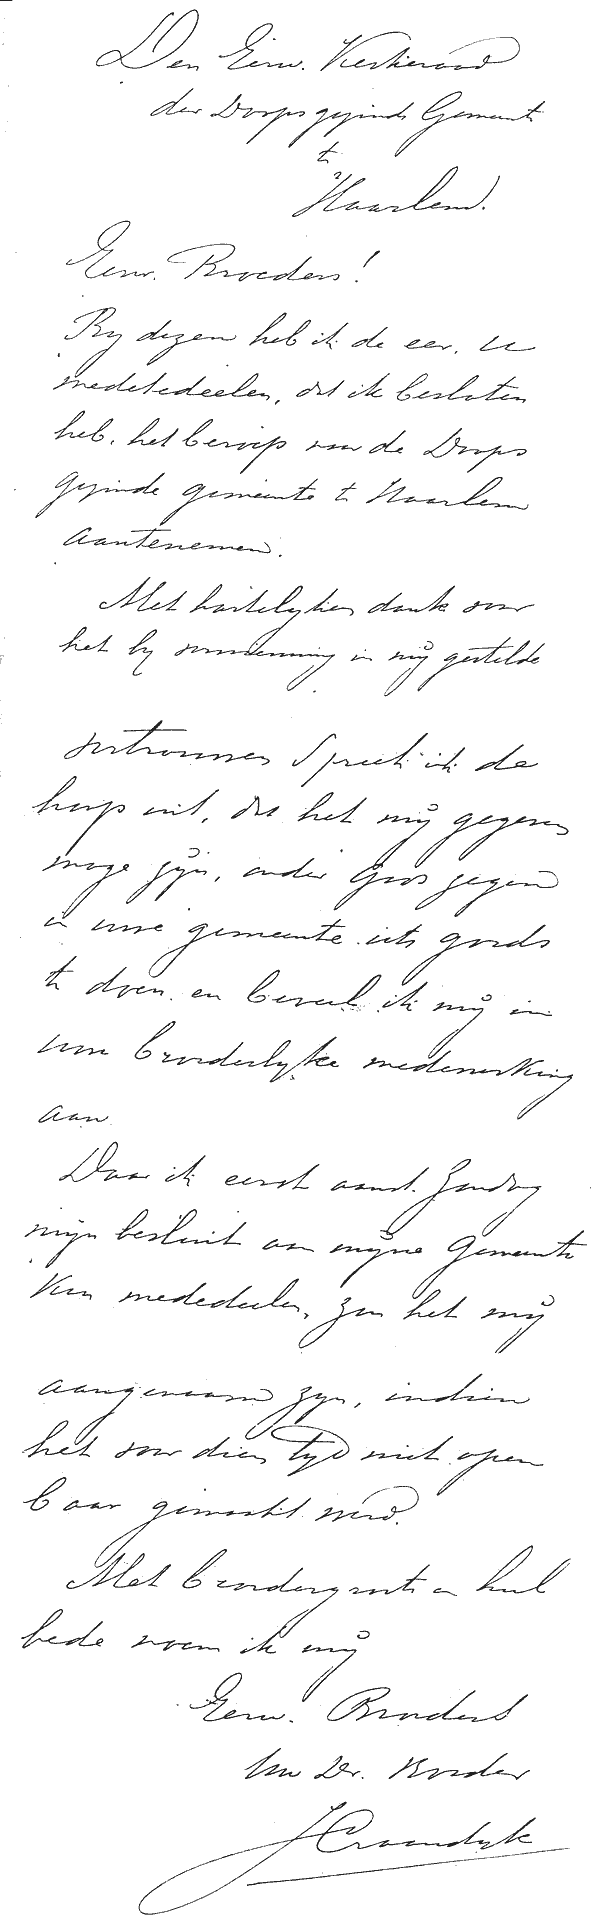 Den Eerw. Kerkeraad
der Doopsgezinde Gemeente
te
Haarlem.
Eerw. Broeders!
By dezen heb ik de eer, u
medetedeelen, dat ik besloten
heb, het beroep naar de Doops
gezinde gemeente te Haarlem
aantenemen.
Met hartelyken dank voor
het by vernieuwing in mij gestelde
vertrouwen spreek ik de
hoop uit, dat het mij gegeven
moge zijn, onder Gods zegen
in uwe gemeente iets goeds
te doen en beveel ik mij in
uwe broederlyke medewerking
aan
Daar ik eerst aanst. Zondag
mijn besluit aan mijne Gemeente
kan mededeelen, zou het mij
aangenaam zyn, indien
het voor dien tyd niet open
baar gemaakt werd.
Met broedergroete en heil
bede noem ik mij
Eerw. Broeders
Uw Dr. Broeder
J Craandyk